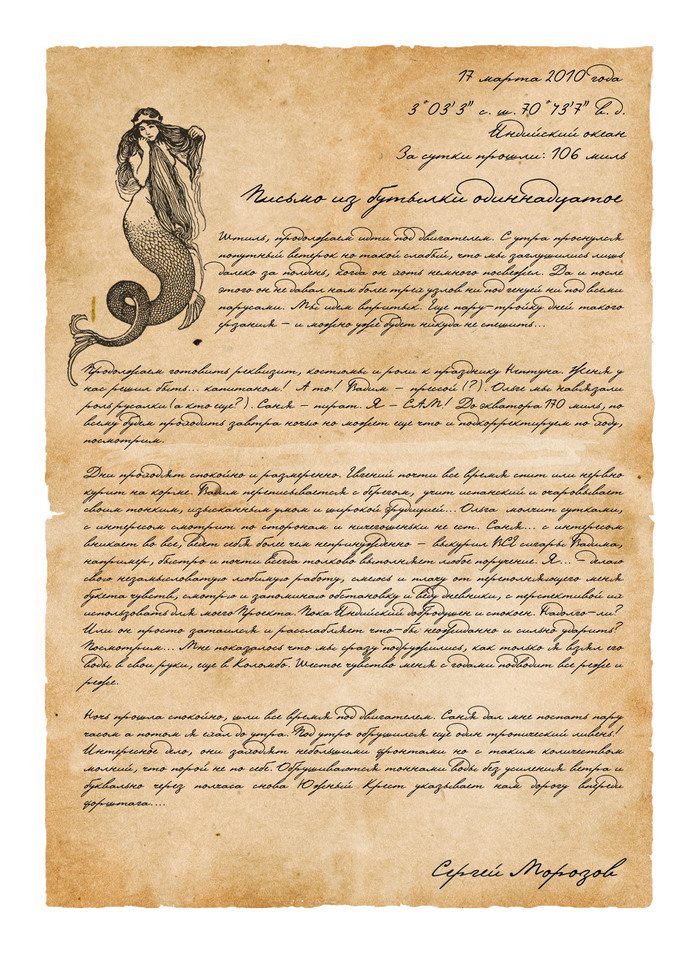 17 марта 2010 года
3°03'3" с. ш. 70°43'7" в. д.
Индийский океан
За сутки прошли: 106 миль
Письмо из бутылки одиннадцатое
Штиль, продолжаем идти под двигателем. С утра проснулся
попутный ветерок но такой слабый, что мы заглушились лишь
далеко за полдень, когда он хоть немного посвежел. Да и после
этого он не давал нам более трех узлов ни под генуей ни под всеми
парусами. Мы идем впритык. Еще пару-тройку дней такого
ерзания – и можно уже будет никуда не спешить...
Продолжаем готовить реквизит, костюмы и роли к празднику Нептуна. Женя у
нас решил быть... капитаном! А то! Вадим – прессой (?). Ольге мы навязали
роль русалки (а кто еще?). Саня – пират. Я – САМ! До экватора 170 миль, по
всему будем проходить завтра ночью но может еще что и подкорректируем по ходу,
посмотрим.
Дни проходят спокойно и размеренно. Евгений почти все время спит или нервно
курит на корме. Вадим переписывается с берегом, учит испанский и очаровывает
своим тонким, изысканным умом и широкой эрудицией... Ольга молчит сутками,
с интересом смотрит по сторонам и ничегошеньки не ест. Саня... с интересом
вникает во все, ведет себя более чем непринужденно – выкурил ВСЕ сигары Вадима,
например, быстро и почти всегда толково выполняет любое поручение. Я... – делаю
свою незамысловатую любимую работу, смеюсь и плачу от переполняющего меня
букета чувств, смотрю и запоминаю обстановку и веду дневники, с перспективой их
использовать для моего Проекта. Пока Индийский добродушен и спокоен. Надолго-ли?
Или он просто затаился и расслабляет что-бы неожиданно и сильно ударить?
Посмотрим... Мне показалось что мы сразу подружились, как только я взял его
воды в свои руки, еще в Коломбо. Шестое чувство меня с годами подводит все реже и
реже.
Ночь прошла спокойно, шли все время под двигателем. Саня дал мне поспать пару
часом а потом я ехал до утра. Под утро обрушился еще один тропический ливень!
Интересное дело, они заходят небольшими фронтами но с таким количеством
молний, что порой не по себе. Обрушиваются тоннами воды без усиления ветра и
буквально через полчаса снова Южный Крест указывает нам дорогу впереди
форштага....
Сергей Морозов